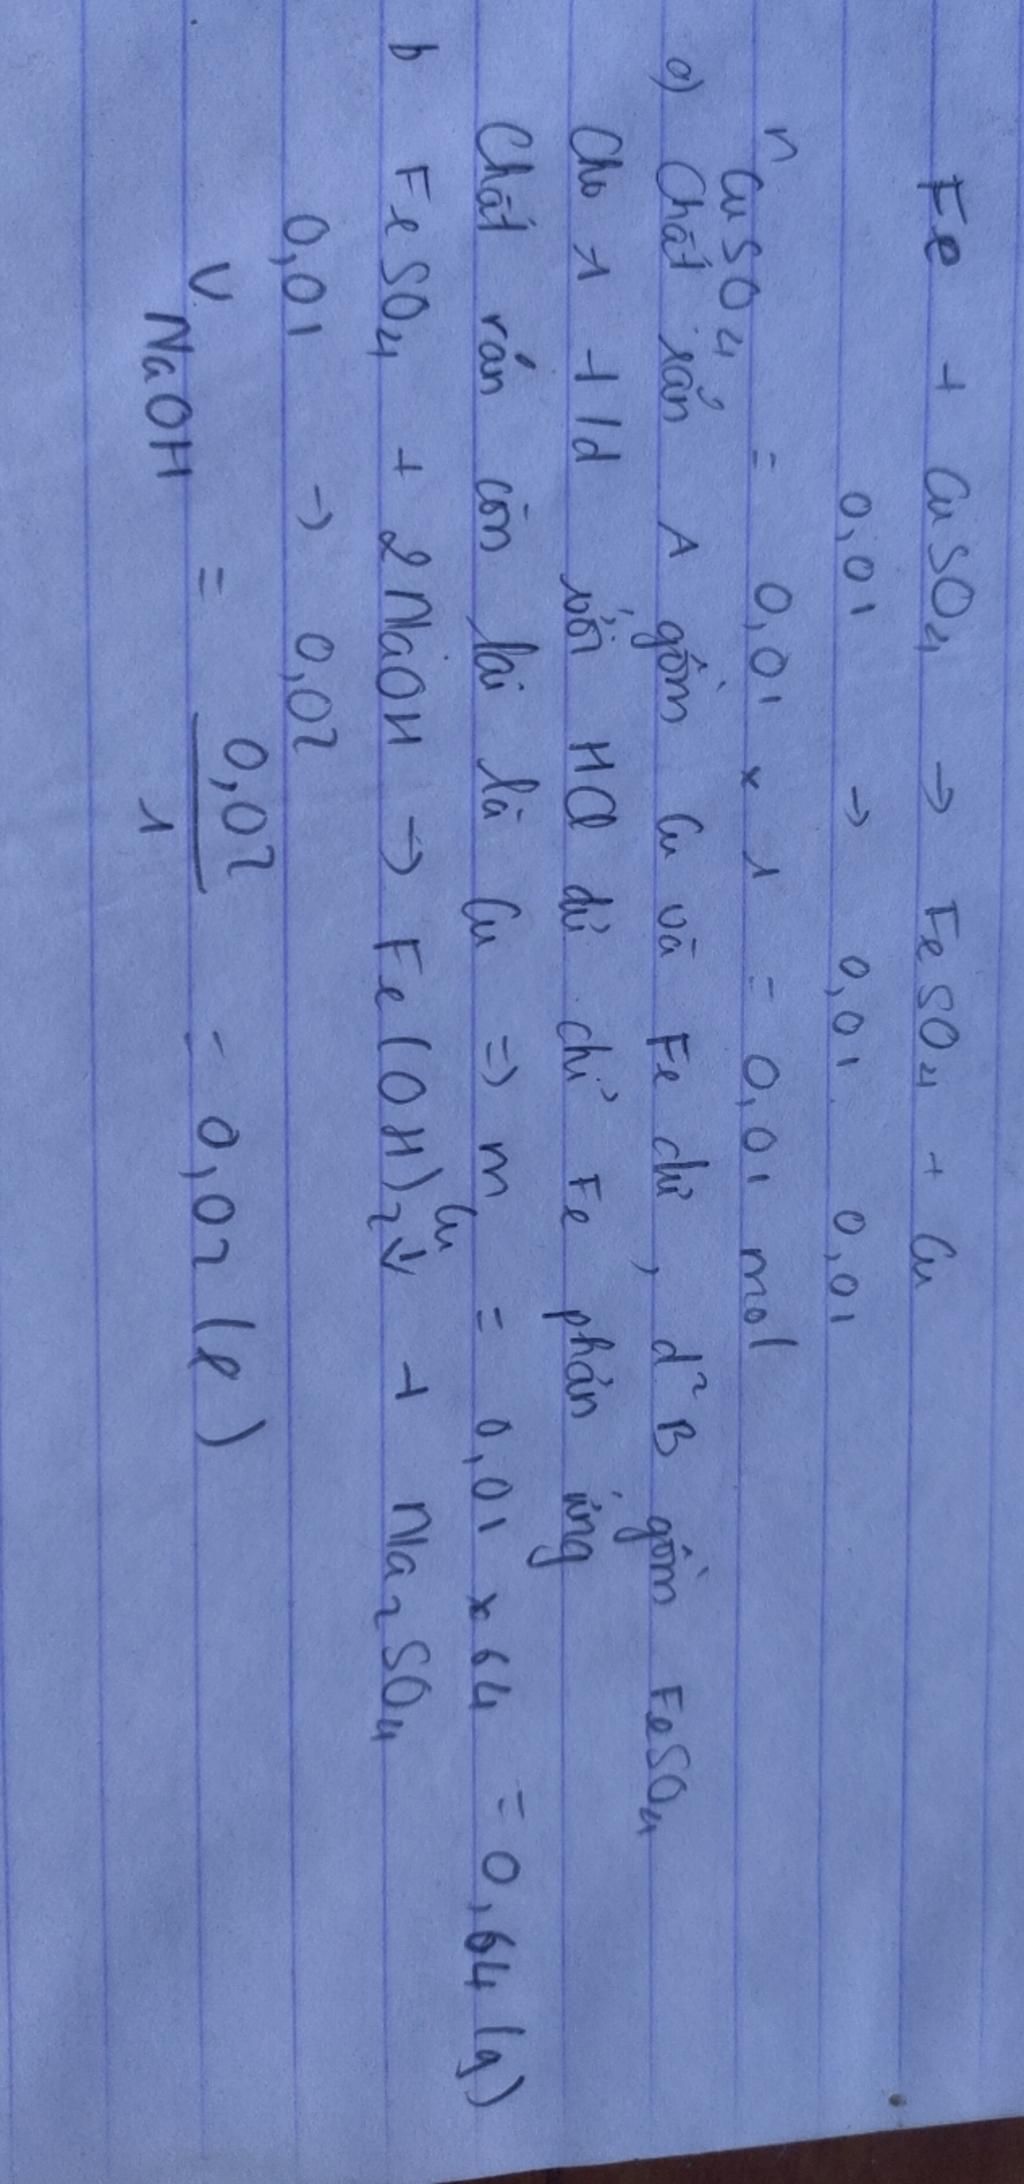 Fe + CuSO4 → FeSO4 + Cu
0,01 → 0,01 0,01
nCuSO4 = 0,01 x 1 = 0,01 mol
a) Chất rắn A gồm Cu và Fe dư, d² B gồm FeSO4
Cho A + /d với HCl dư chỉ Fe phản ứng
Chất rắn còn lại là Cu => mCu = 0,01 x 64 = 0,64 (g)
b FeSO4 + 2NaOH → Fe(OH)2↓ + Na2SO4
0,01 → 0,02
VNaOH = 0,02 / 1 = 0,02 (l)